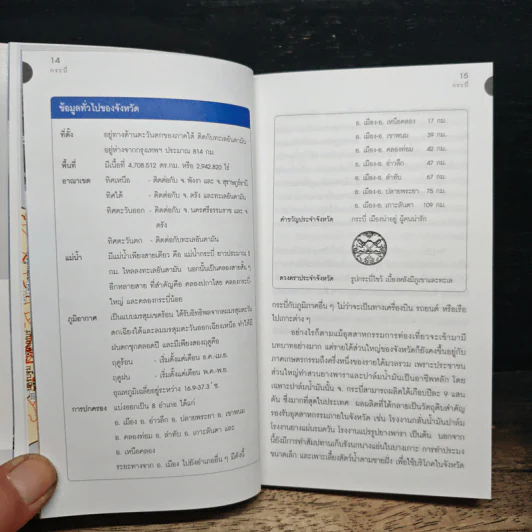 14
กระบี่
ข้อมูลทั่วไปของจังหวัด
ที่ตั้ง อยู่ทางด้านตะวันตกของภาคใต้ ติดกับทะเลอันดามัน
อยู่ห่างจากกรุงเทพฯ ประมาณ 814 กม.
พื้นที่ มีเนื้อที่ 4,708.512 ตร.กม. หรือ 2,942,820 ไร่
อาณาเขต ทิศเหนือ - ติดต่อกับ จ. พังงา และ จ. สุราษฎร์ธานี
ทิศใต้ - ติดต่อกับ จ. ตรัง และทะเลอันดามัน
ทิศตะวันออก - ติดต่อกับ จ. นครศรีธรรมราช และ จ.
ตรัง
ทิศตะวันตก - ติดต่อกับทะเลอันดามัน
แม่น้ำ มีแม่น้ำเพียงสายเดียว คือ แม่น้ำกระบี่ ยาวประมาณ 5
กม. ไหลลงทะเลอันดามัน นอกนั้นเป็นคลองสายสั้น ๆ
อีกหลายสาย ที่สำคัญคือ คลองปกาไสย คลองกระบี่
ใหญ่ และคลองกระบี่น้อย
ภูมิอากาศ เป็นแบบมรสุมเขตร้อน ได้รับอิทธิพลจากลมมรสุมตะวัน
ตกเฉียงใต้และลมมรสุมตะวันออกเฉียงเหนือ ทำให้มี
ฝนตกชุกตลอดปี และมีเพียงสองฤดูคือ
ฤดูร้อน - เริ่มตั้งแต่เดือน ม.ค.-เม.ย.
ฤดูฝน - เริ่มตั้งแต่เดือน พ.ค.-ธ.ค.
อุณหภูมิเฉลี่ยอยู่ระหว่าง 16.9-37.3 ํซ.
การปกครอง แบ่งออกเป็น 8 อำเภอ ได้แก่
อ. เมือง อ. อ่าวลึก อ. ปลายพระยา อ. เขาพนม
อ. คลองท่อม อ. ลำทับ อ. เกาะลันตา และ
อ. เหนือคลอง
ระยะทางจาก อ. เมือง ไปยังอำเภออื่น ๆ มีดังนี้
15
กระบี่
อ. เมือง-อ. เหนือคลอง 17 กม.
อ. เมือง-อ. เขาพนม 39 กม.
อ. เมือง-อ. คลองท่อม 42 กม.
อ. เมือง-อ. อ่าวลึก 47 กม.
อ. เมือง-อ. ลำทับ 67 กม.
อ. เมือง-อ. ปลายพระยา 75 กม.
อ. เมือง-อ. เกาะลันตา 109 กม.
คำขวัญประจำจังหวัด กระบี่ เมืองน่าอยู่ ผู้คนน่ารัก
ดวงตราประจำจังหวัด รูปกระบี่ไขว้ เบื้องหลังมีภูเขาและทะเล
กระบี่กับภูมิภาคอื่น ๆ ไม่ว่าจะเป็นทางเครื่องบิน รถยนต์ หรือเรือ
ไปเกาะต่าง ๆ
อย่างไรก็ตามแม้อุตสาหกรรมการท่องเที่ยวจะเข้ามามี
บทบาทอย่างมาก แต่รายได้ส่วนใหญ่ของจังหวัดก็ยังคงขึ้นอยู่กับ
ภาคเกษตรกรรมถึงครึ่งหนึ่งของรายได้มวลรวม เพราะประชาชน
ส่วนใหญ่ทำสวนยางพาราและปาล์มน้ำมันเป็นอาชีพหลัก โดย
เฉพาะปาล์มน้ำมันนั้น จ. กระบี่สามารถผลิตได้เกือบปีละ 9 แสน
ตัน ซึ่งมากที่สุดในประเทศ ผลผลิตที่ได้กลายเป็นวัตถุดิบสำคัญ
รองรับอุตสาหกรรมภายในจังหวัด เช่น โรงงานกลั่นน้ำมันปาล์ม
โรงงานยางแผ่นรมควัน โรงงานแปรรูปยางพารา เป็นต้น นอกจาก
นี้ยังมีการทำสัมปทานเก็บรังนกนางแอ่นในบางเกาะ การทำประมง
ขนาดเล็ก และเพาะเลี้ยงสัตว์น้ำตามชายฝั่ง เพื่อใช้บริโภคในจังหวัด